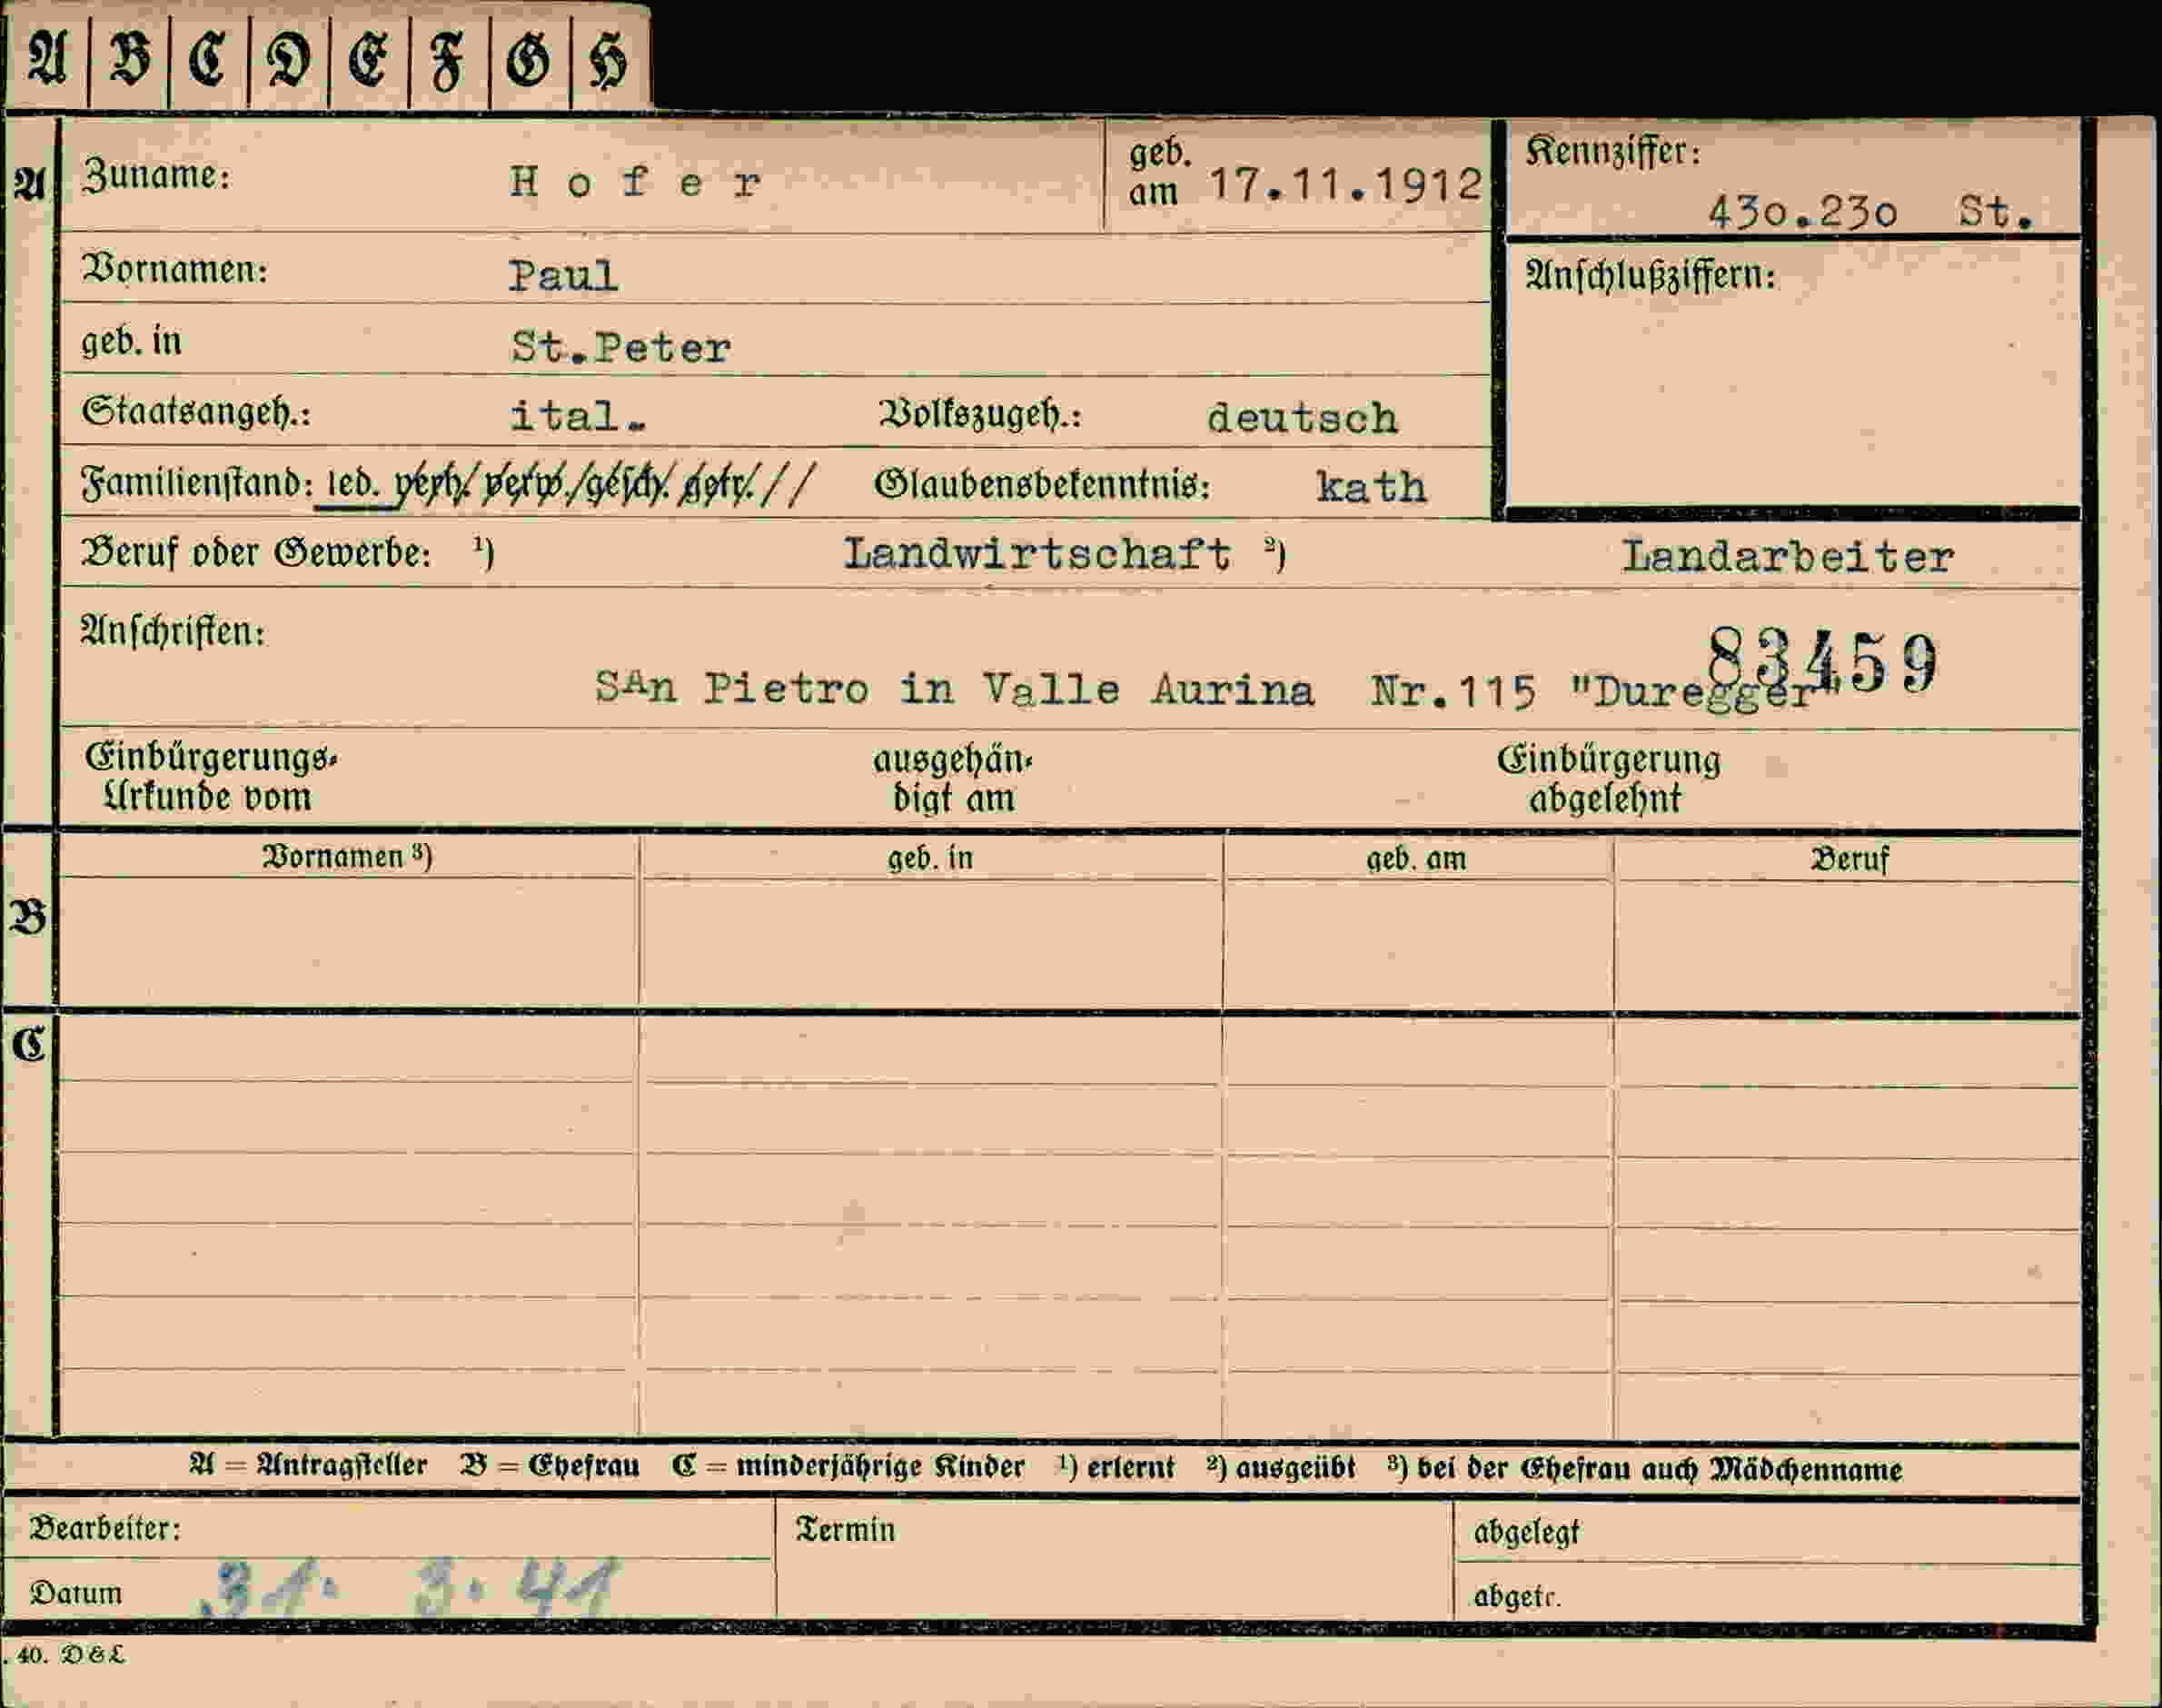 A B C D E F G H
A Zuname: Hofer geb. am 17.11.1912 Kennziffer: 430.230 St.
Vornamen: Paul Anschlußziffern:
geb. in St.Peter
Staatsangeh.: ital. Volkszugeh.: deutsch
Familienstand: led. verh. verw. gesch. getr. // Glaubensbekenntnis: kath
Beruf oder Gewerbe: ¹) Landwirtschaft ²) Landarbeiter
Anschriften: 83459
SAn Pietro in Valle Aurina Nr.115 "Duregger"
Einbürgerungs- ausgehän- Einbürgerung
Urkunde vom digt am abgelehnt
Vornamen ³) geb. in geb. am Beruf
B
C
A = Antragsteller B = Ehefrau C = minderjährige Kinder ¹) erlernt ²) ausgeübt ³) bei der Ehefrau auch Mädchenname
Bearbeiter: Termin abgelegt
Datum 31. 3. 41 abgetr.
. 40. D & L